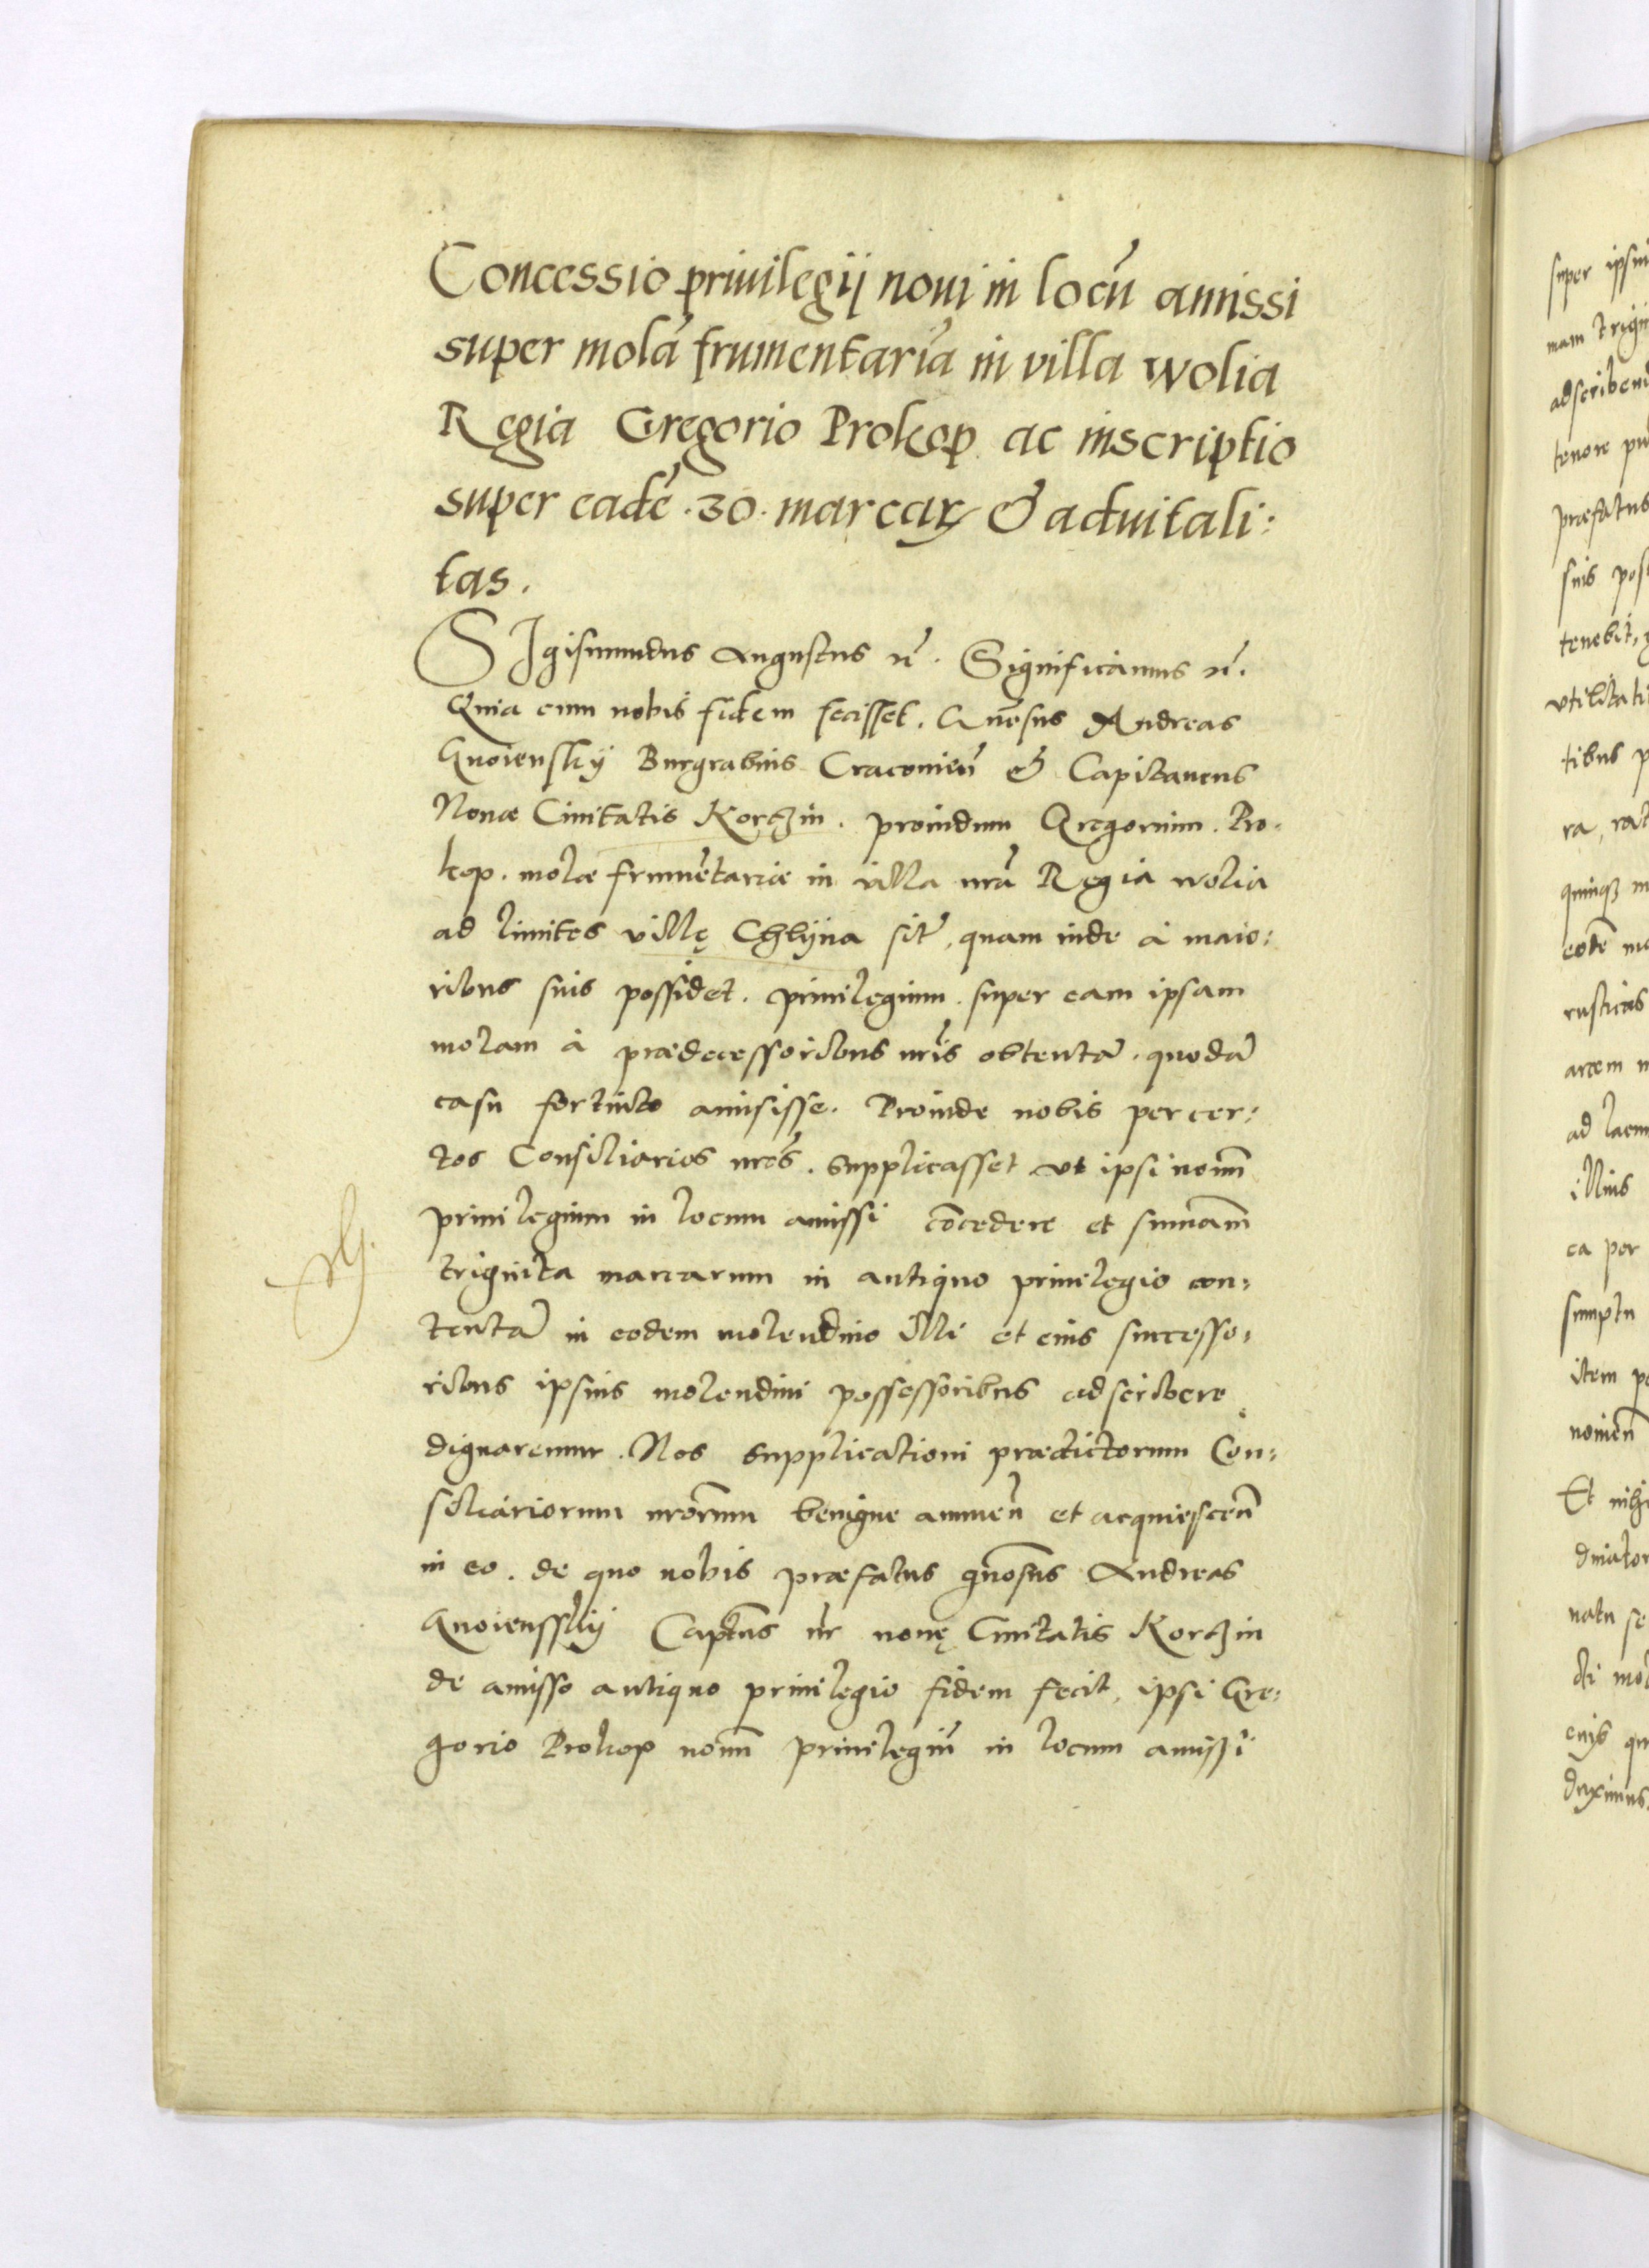 Concessio priuilegij noui in locū amissi
super molā frumentariā in villa wolia
Regia Gregorio Prokop ac inscriptio
super eadē .30. marcaꝝ & aduitali:
tas.
SIgismundus Augustus ꝛc̄. Significamus ꝛc̄.
Quia cum nobis fidem fecisset. Gn̄osus Andreas
Gnoienskij Burgrabius Cracouien̄ & Capitaneus
Nouæ Ciuitatis Korczin. prouidum Gregorium. Pro-
kop. molæ frumētariæ in villa nrā Regia wolia
ad limites villę Chlijna sit̄, quam inde à maio:
ribus suis possidet. priuilegium. super eam ipsam
molam à prædecessoribus nrīs obtentā. quodā
casu fortuito amisisse. Proinde nobis per cer:
tos Consiliarios nrōs. supplicasset vt ipsi nouū
priuilegium in locum amissi cōcedere et summam̄
triginta marcarum in antiquo priuilegio con:
tentā in eodem molendino illi et eius successo:
ribus ipsius molendini possessoribus adscribere
dignaremur. Nos supplicationi prædictorum Con:
siliariorum nrōrum benigne annuen̄ et acquiescen̄
in eo. de quo nobis præfatus gn̄osus Andreas
Gnoiensskij Capt̄nus nr̄ nouę Ciuitatis Korczin
de amisso antiquo priuilegio fidem fecit, ipsi Gre:
gorio Prokop nouū priuilegiū in locum amissi
super ipsius
nam trigin
adscriben
tenore
præfatus
suis
tenebit,
vtilitati
tibus p
ra,
quinqꝫ m
eodē
rusticas
arcem
ad
illius
ca per
sumptu
item
Et
natu se
duximus.